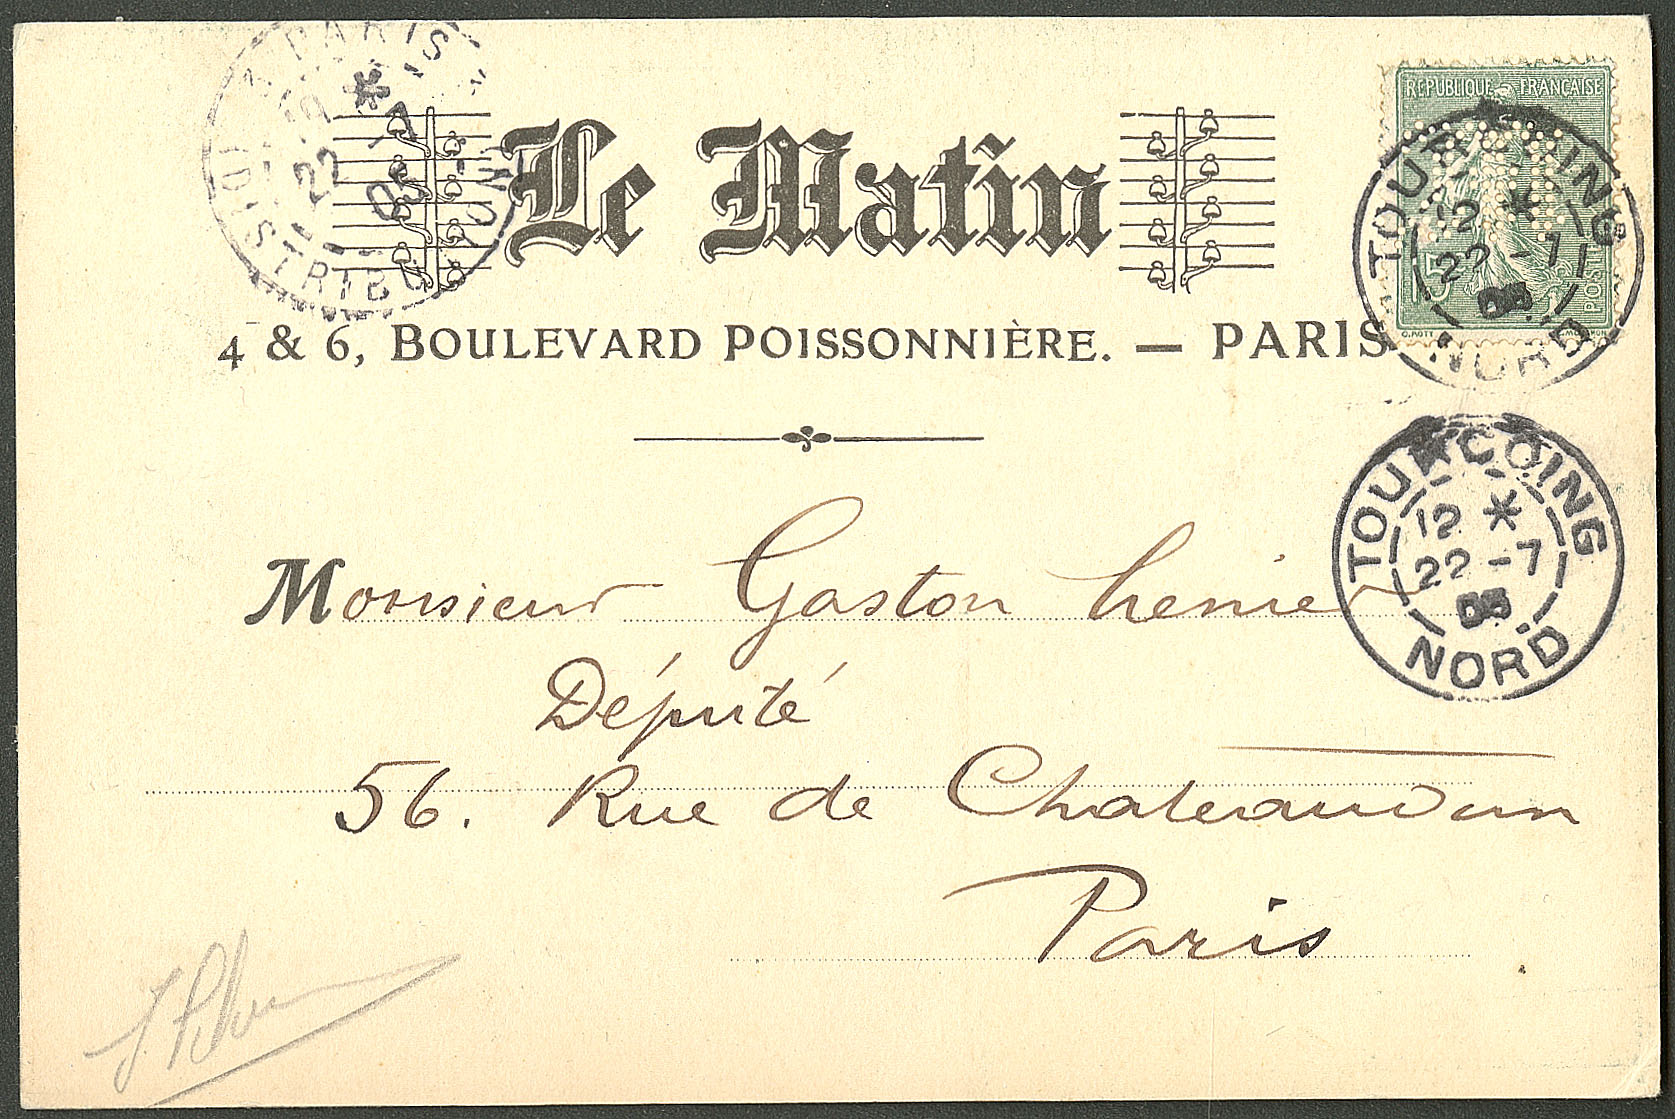 PARIS
22 -7 05
DISTRIBUTION
Le Matin
4 & 6, BOULEVARD POISSONNIÈRE. — PARIS
RÉPUBLIQUE FRANÇAISE
15
POSTES
TOURCOING
12 *
22 -7
05
NORD
TOURCOING
12 *
22 -7
05
NORD
Monsieur Gaston Menier
Député
56. Rue de Chateaudun
Paris